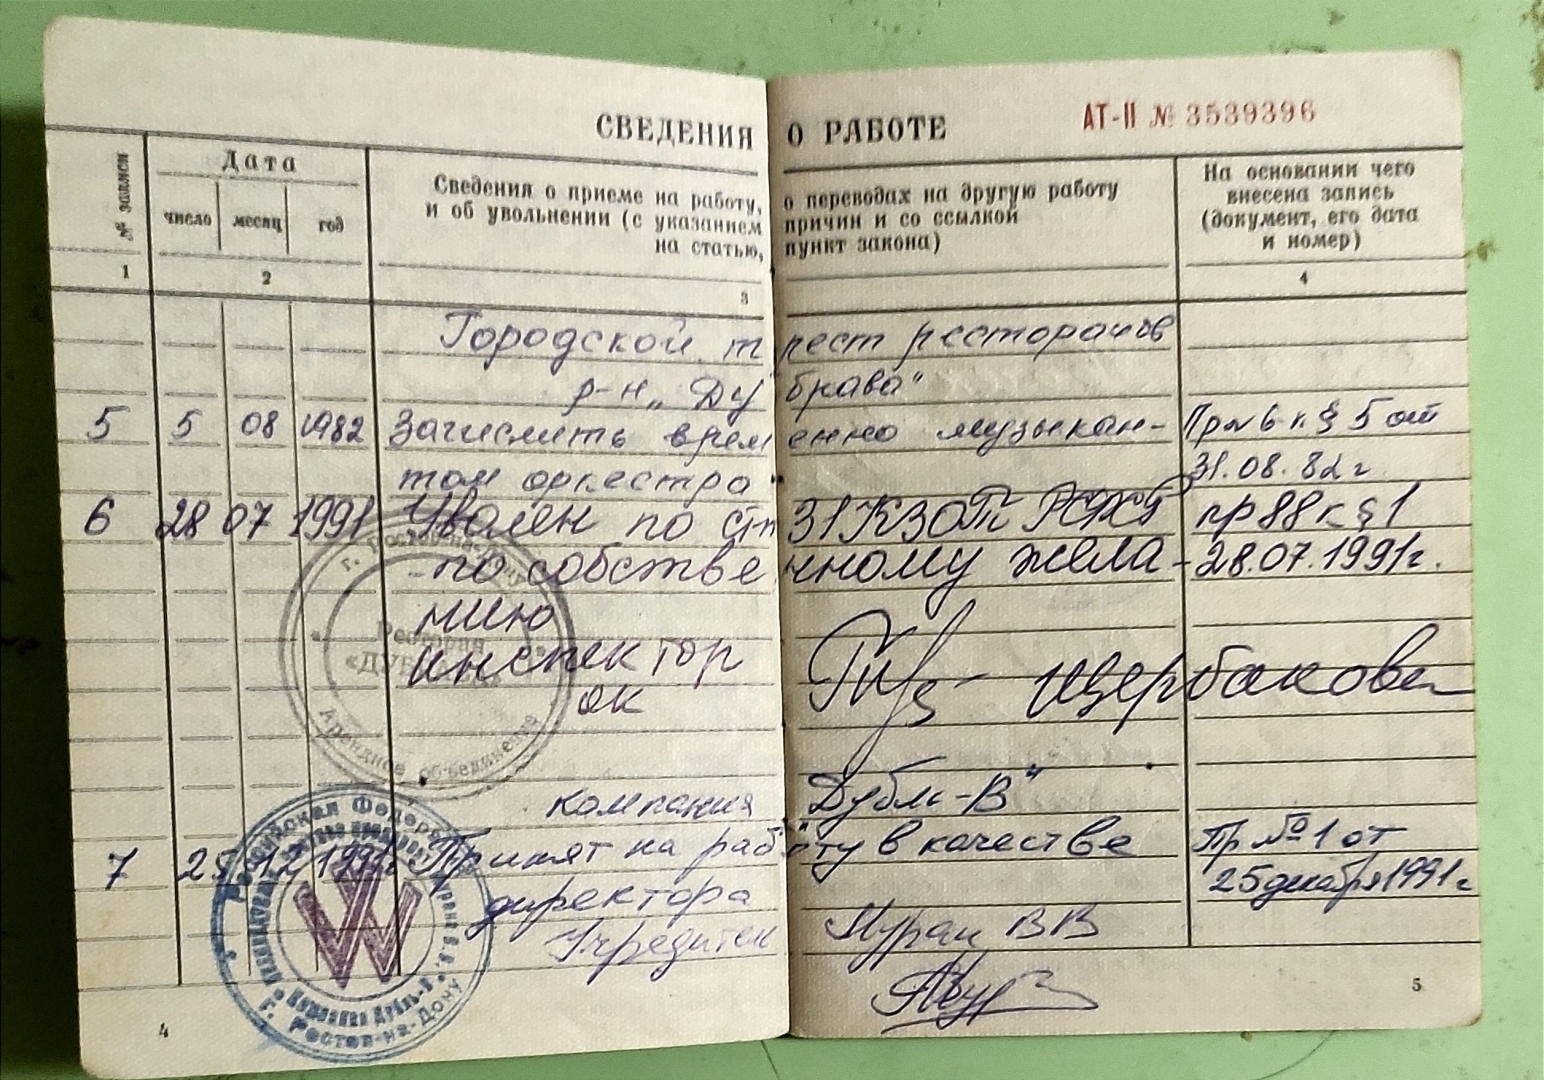 СВЕДЕНИЯ О РАБОТЕ
АТ-II № 3539396
№ записи
Дата
число месяц год
Сведения о приеме на работу, о переводах на другую работу
и об увольнении (с указанием причин и со ссылкой
на статью, пункт закона)
На основании чего
внесена запись
(документ, его дата
и номер)
1 2 3 4
Городской трест ресторанов
р-н „Дубрава"
5 5 08 1982 Зачислить временно музыкан- Пр № 6 к § 5 от
том оркестра 31.08.82 г
6 28 07 1991 Уволен по ст 31 КЗОТ РСФСР пр 88 к § 1
по собственному жела- 28.07.1991г.
нию
инспектор Щербакова
ок
г. Ростов-на-Дону
Ресторан
«ДУБРАВА»
Арендное объединение
компания „Дубль-В"
7 25 12 1991 Принят на работу в качестве Пр № 1 от
директора 25 декабря 1991 г
Учредител Муран ВВ
Российская Федерация
W
Компания Дубль-В
г. Ростов-на-Дону
4
5